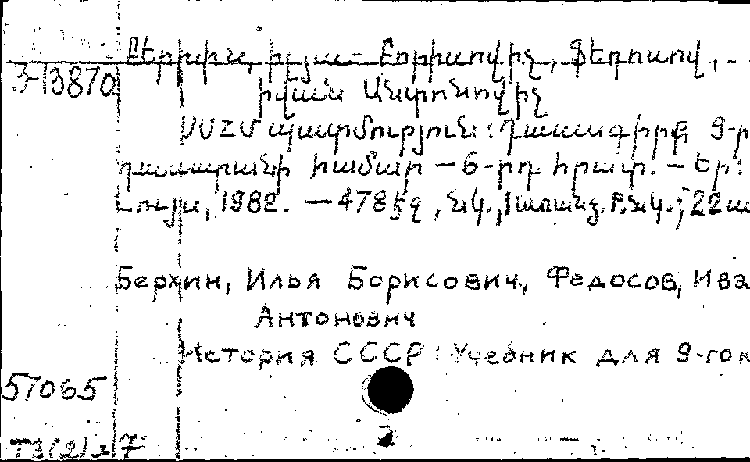 Բերխին, Իլյա Բորիսովիչ, Ֆեդոսով,
3-13870
Իվան Անտոնովիչ
ՍՍՀՄ պատմություն: Դասագիրք 9-ր
դասարանի համար – 6-րդ հրատ. – Եր:
Լույս, 1982. – 478 էջ, նկ., 22
Берхин, Илья Борисович, Федосов, Ива
Антонович
История СССР: Учебник для 9-го к
57065
Т3(2)я7